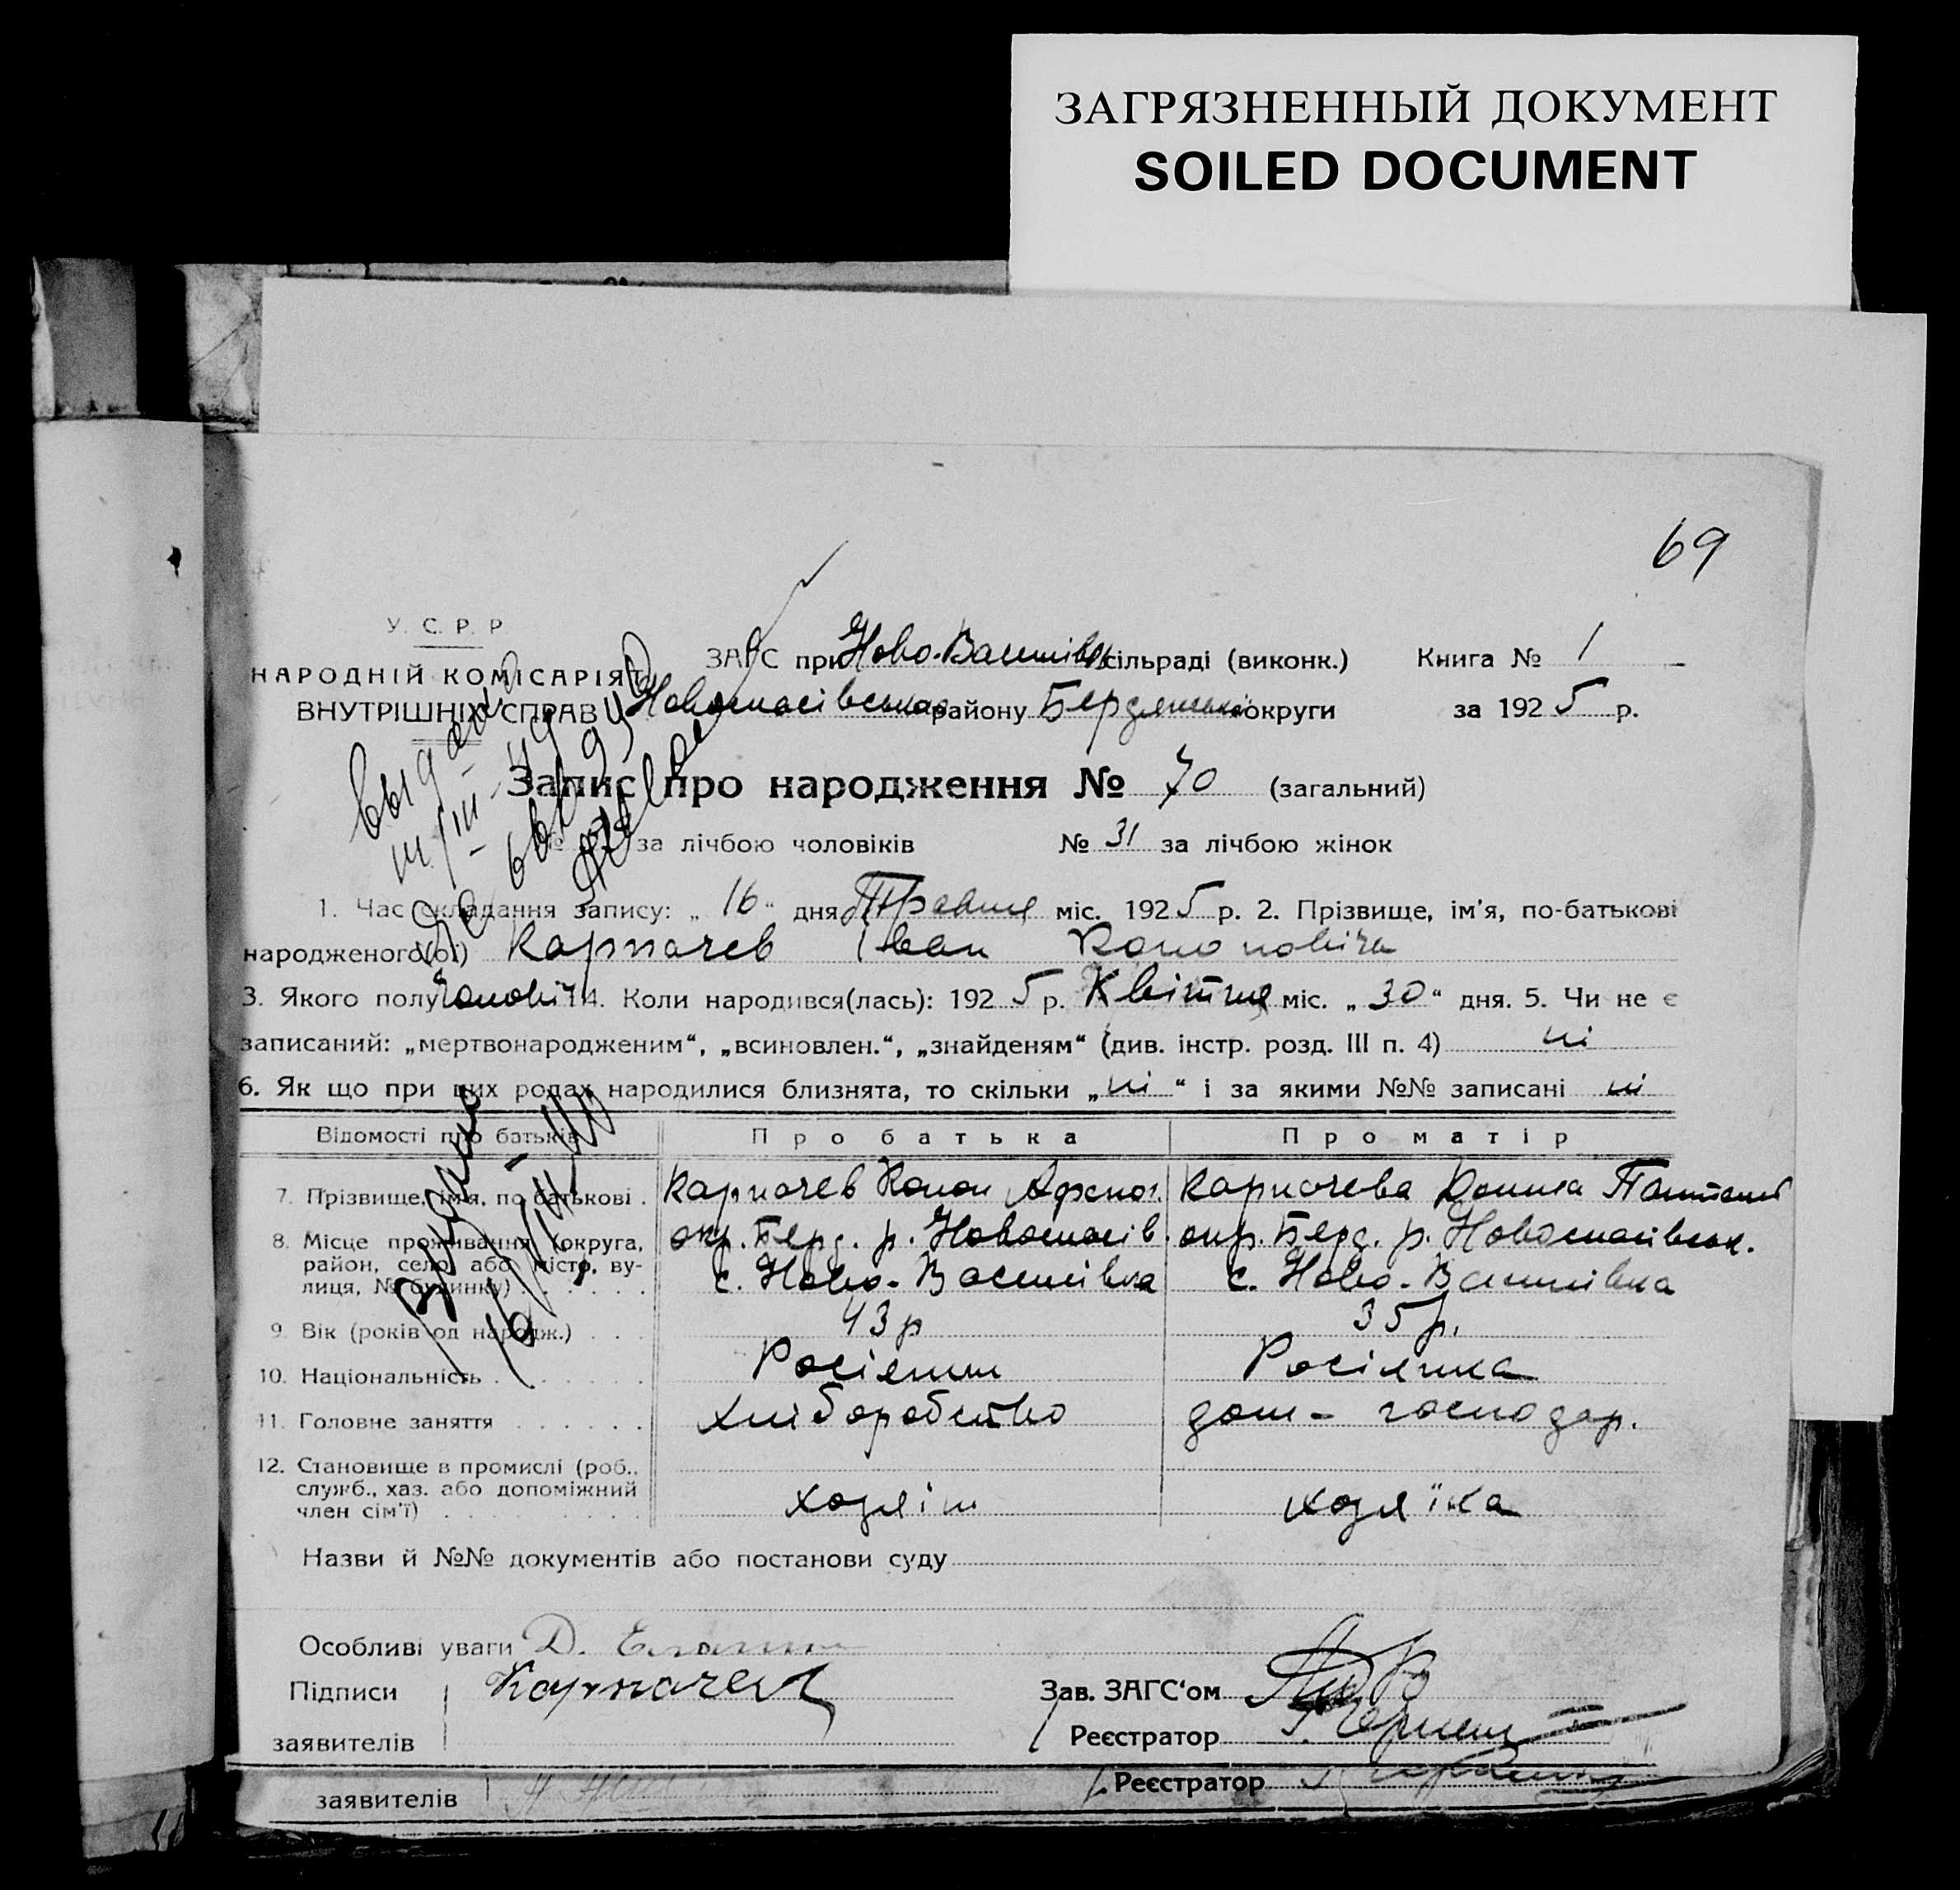 ЗАГРЯЗНЕННЫЙ ДОКУМЕНТ
SOILED DOCUMENT
69
У. С. Р. Р.
НАРОДНІЙ КОМІСАРІЯТ
ВНУТРІШНІХ СПРАВ
ЗАГС при Ново-Василівськ сільраді (виконк.) Книга № 1
Новоспасівського району Бердянської округи за 1925 р.
Запис про народження № 70 (загальний)
№ за лічбою чоловіків № 31 за лічбою жінок
1. Час складання запису: „16“ дня Травня міс. 1925 р. 2. Прізвище, ім’я, по-батькові
народженого(ої) Карпачев Іван Кононовіча
3. Якого полу чоловіч 4. Коли народився(лась): 1925 р. Квітня міс. „30“ дня. 5. Чи не є
записаний: „мертвонародженим“, „всиновлен.“, „знайденям“ (див. інстр. розд. III п. 4) ні
6. Як що при цих родах народилися близнята, то скільки „ні“ і за якими №№ записані ні
Відомості про батьків Про батька Про матір
7. Прізвище, ім’я, по батькові . Карпачев Конон Афанас. Карпачева Домна
8. Місце проживання (округа, район, село або місто, вулиця, № будинку) . . . . . .
окр. Берд. р. Новоспасів. окр. Берд. р. Новоспасівськ.
с. Ново-Василівка с. Ново-Василівка
9. Вік (років од народж.) . . . 43 р 35 р.
10. Національність . . . . . . . Росіянин Росіянка
11. Головне заняття . . . . . . хліборобство дом- господар.
12. Становище в промислі (роб.,
служб., хаз. або допоміжний
член сім’ї) . . . . . . . . . хозяін хозяїка
Назви й №№ документів або постанови суду
Особливі уваги
Підписи Карпачев Зав. ЗАГС‘ом
заявителів Реєстратор
заявителів Реєстратор
выдано
Видано